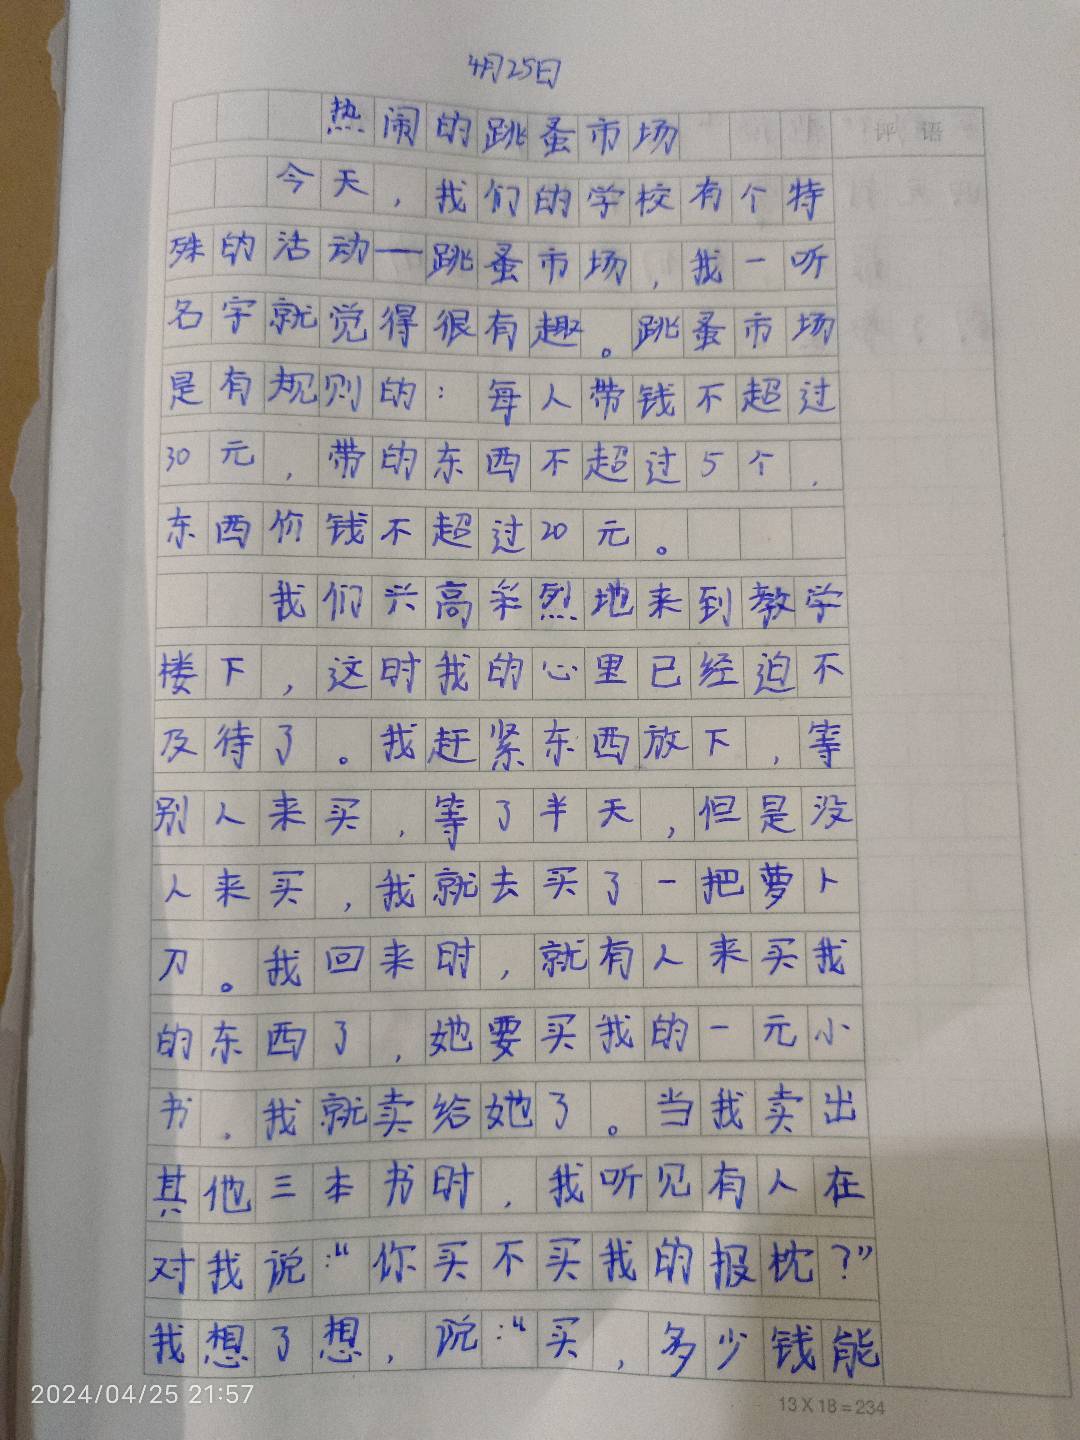 4月25日
热闹的跳蚤市场
评语
今天，我们的学校有个特
殊的活动——跳蚤市场，我一听
名字就觉得很有趣。跳蚤市场
是有规则的：每人带钱不超过
30元，带的东西不超过5个，
东西价钱不超过20元。
我们兴高采烈地来到教学
楼下，这时我的心里已经迫不
及待了。我赶紧东西放下，等
别人来买，等了半天，但是没
人来买，我就去买了一把萝卜
刀。我回来时，就有人来买我
的东西了，她要买我的一元小
书，我就卖给她了。当我卖出
其他三本书时，我听见有人在
对我说：“你买不买我的报枕？”
我想了想，说：“买，多少钱能
2024/04/25 21:57
13X18=234